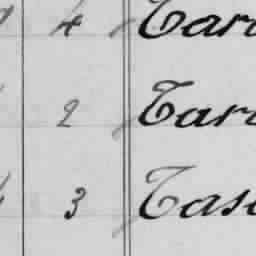 4 Tar
2 Tar
3 Tas